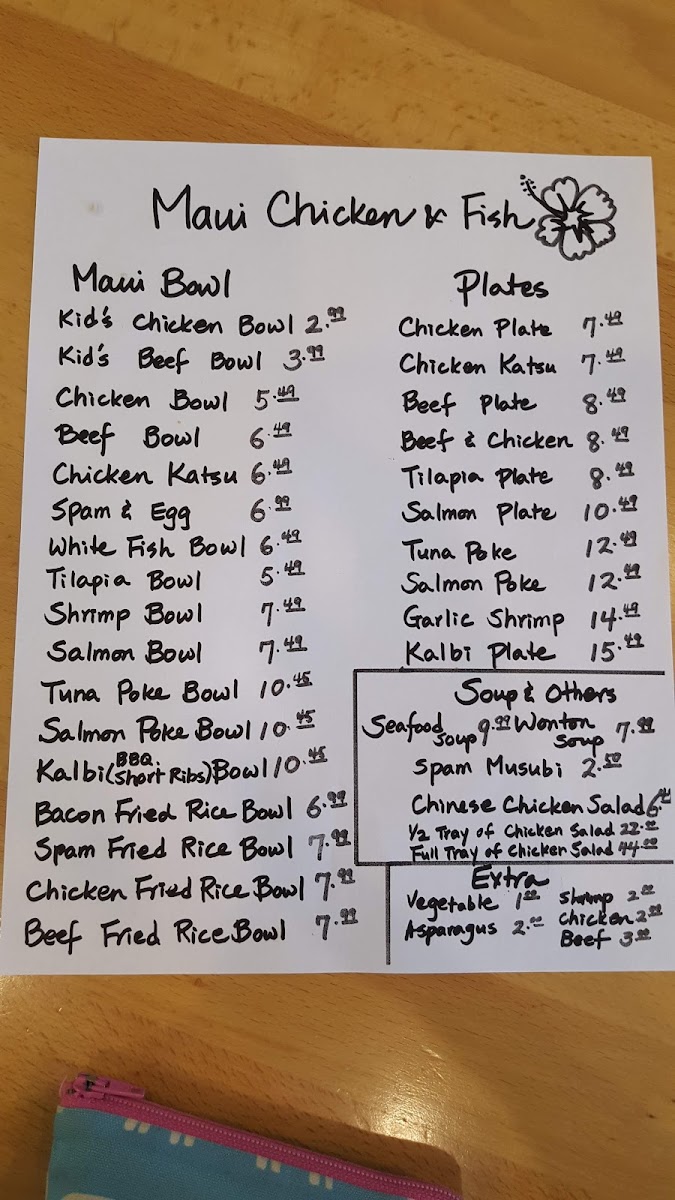 Maui Chicken & Fish
Maui Bowl
Kid's Chicken Bowl 2.99
Kid's Beef Bowl 3.99
Chicken Bowl 5.49
Beef Bowl 6.49
Chicken Katsu 6.49
Spam & Egg 6.99
White Fish Bowl 6.49
Tilapia Bowl 5.49
Shrimp Bowl 7.49
Salmon Bowl 7.49
Tuna Poke Bowl 10.45
Salmon Poke Bowl 10.45
Kalbi (BBQ Short Ribs) Bowl 10.45
Bacon Fried Rice Bowl 6.99
Spam Fried Rice Bowl 7.99
Chicken Fried Rice Bowl 7.99
Beef Fried Rice Bowl 7.99
Plates
Chicken Plate 7.49
Chicken Katsu 7.49
Beef Plate 8.49
Beef & Chicken 8.49
Tilapia Plate 8.49
Salmon Plate 10.49
Tuna Poke 12.49
Salmon Poke 12.49
Garlic Shrimp 14.49
Kalbi Plate 15.49
Soup & Others
Seafood Soup 9.99 Wonton Soup 7.99
Spam Musubi 2.50
Chinese Chicken Salad
1/2 Tray of Chicken Salad 22.00
Full Tray of Chicken Salad 44.00
Extra
Vegetable 1.00 Shrimp 2.00
Asparagus 2.00 Chicken 2.00
Beef 3.00